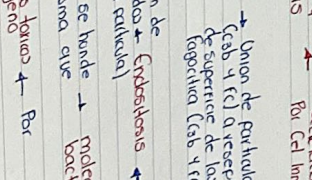 Por Cel Inm
→ Union de particula
(C3b y Fc) a resep
de superficie de la
Fagocitica (C3b y F
n de
dos + Endositosis ←
particula)
se hunde → mole
ma que bact
← Por
geno